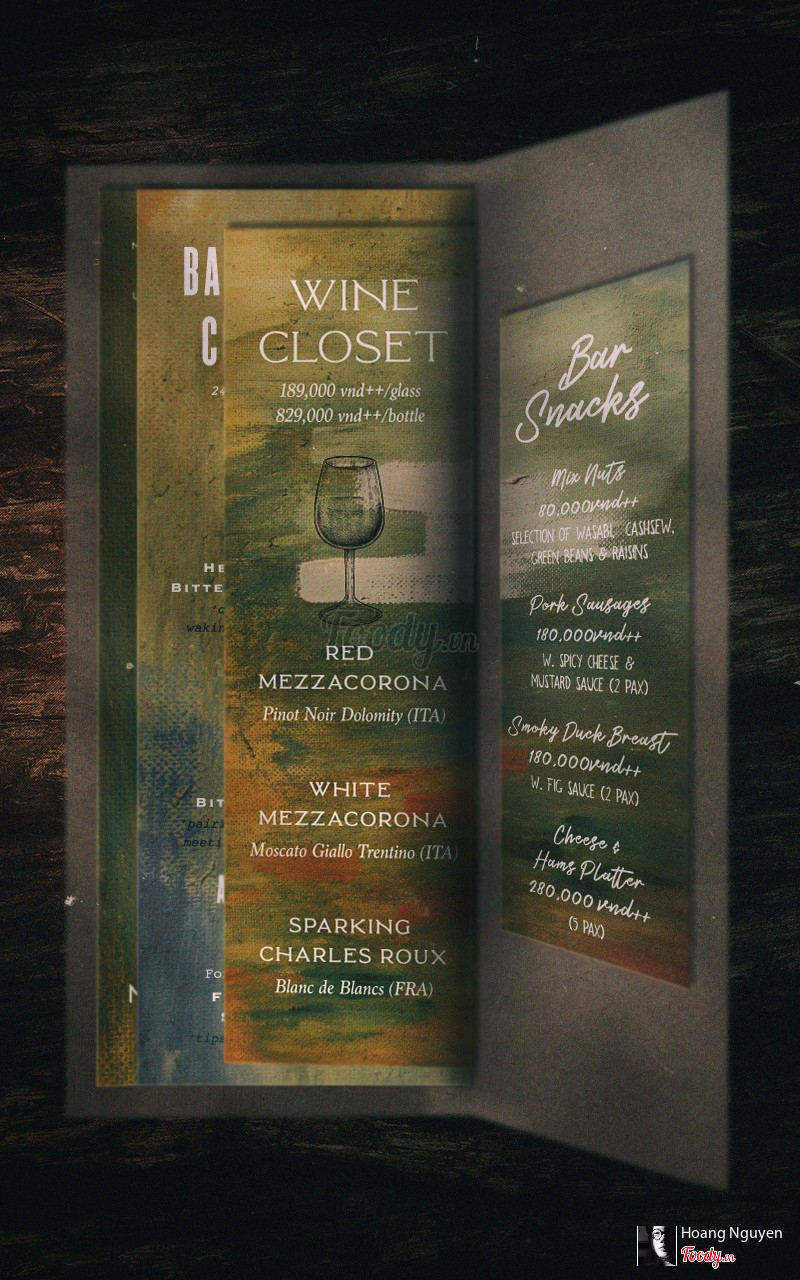 BA
C
HE
BITTE
wakin
BIT
'pairi
meeti
A
N
FO
F
S
'tips
WINE
CLOSET
189,000 vnd++/glass
829,000 vnd++/bottle
RED
MEZZACORONA
Pinot Noir Dolomity (ITA)
WHITE
MEZZACORONA
Moscato Giallo Trentino (ITA)
SPARKING
CHARLES ROUX
Blanc de Blancs (FRA)
Bar
Snacks
Mix Nuts
80.000vnd++
SELECTION OF WASABI, CASHSEW,
GREEN BEANS & RAISINS
Pork Sausages
180.000vnd++
W. SPICY CHEESE &
MUSTARD SAUCE (2 PAX)
Smoky Duck Breast
180.000vnd++
W. FIG SAUCE (2 PAX)
Cheese &
Hams Platter
280.000 vnd++
(5 PAX)
Foody.vn
Hoang Nguyen
Foody.vn